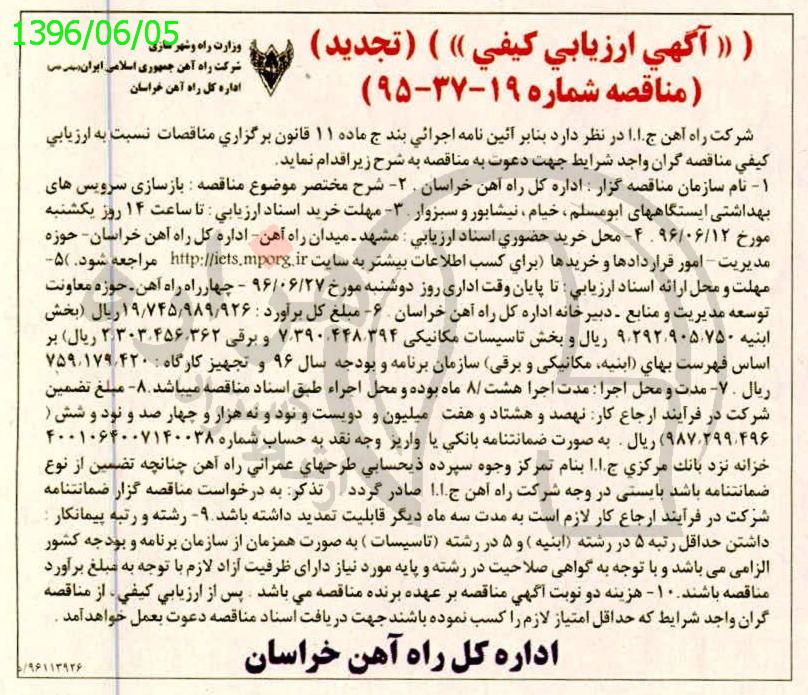 1396/06/05
وزارت راه وشهرسازی
شرکت راه آهن جمهوری اسلامی ایران (سهامی خاص)
اداره کل راه آهن خراسان
( « آگهي ارزيابي كيفي » ) ( تجديد )
(مناقصه شماره ۱۹-۳۷-۹۵)
شرکت راه آهن ج.ا.ا در نظر دارد بنابر آئين نامه اجرائي بند ج ماده ۱۱ قانون برگزاري مناقصات نسبت به ارزيابي
كيفي مناقصه گران واجد شرايط جهت دعوت به مناقصه به شرح زير اقدام نمايد.
۱- نام سازمان مناقصه گزار : اداره کل راه آهن خراسان . ۲- شرح مختصر موضوع مناقصه : بازسازی سرویس های
بهداشتی ایستگاههای ابومسلم ، خیام ، نیشابور و سبزوار . ۳- مهلت خريد اسناد ارزيابي : تا ساعت ۱۴ روز یکشنبه
مورخ ۹۶/۰۶/۱۲ . ۴- محل خريد حضوري اسناد ارزيابي : مشهد ـ میدان راه آهن- اداره کل راه آهن خراسان- حوزه
مديريت – امور قراردادها و خريدها (براي كسب اطلاعات بيشتر به سايت http://iets.mporg.ir مراجعه شود.) ۵-
مهلت و محل ارائه اسناد ارزيابي : تا پايان وقت اداري روز دوشنبه مورخ ۹۶/۰۶/۲۷ - چهارراه راه آهن ـ حوزه معاونت
توسعه مديريت و منابع ـ دبيرخانه اداره كل راه آهن خراسان . ۶- مبلغ كل برآورد : ۱۹٫۷۴۵٫۹۸۹٫۹۲۶ ریال (بخش
ابنیه ۹٫۲۹۲٫۹۰۵٫۷۵۰ ریال و بخش تاسیسات مکانیکی ۷٫۳۹۰٫۴۴۸٫۳۹۴ و برقی ۲٫۳۰۳٫۴۵۶٫۳۶۲ ریال) بر
اساس فهرست بهاي (ابنیه، مکانیکی و برقی) سازمان برنامه و بودجه سال ۹۶ و تجهیز کارگاه : ۷۵۹٫۱۷۹٫۴۲۰
ریال . ۷- مدت و محل اجرا : مدت اجرا هشت /۸ ماه بوده و محل اجراء طبق اسناد مناقصه ميباشد. ۸- مبلغ تضمين
شركت در فرآيند ارجاع كار : نهصد و هشتاد و هفت ميليون و دويست و نود و نه هزار و چهار صد و نود و شش (
۹۸۷٫۲۹۹٫۴۹۶) ريال . به صورت ضمانتنامه بانكي يا واريز وجه نقد به حساب شماره ۴۰۰۱۰۶۴۰۰۷۱۴۰۰۳۸
خزانه نزد بانك مركزي ج.ا.ا بنام تمركز وجوه سپرده ذيحسابي طرحهاي عمراني راه آهن چنانچه تضمين از نوع
ضمانتنامه باشد بايستي در وجه شركت راه آهن ج.ا.ا صادر گردد . ( تذكر: به درخواست مناقصه گزار ضمانتنامه
شركت در فرآيند ارجاع كار لازم است به مدت سه ماه ديگر قابليت تمديد داشته باشد. ۹- رشته و رتبه پيمانكار :
داشتن حداقل رتبه ۵ در رشته (ابنيه ) و ۵ در رشته (تاسیسات ) به صورت همزمان از سازمان برنامه و بودجه کشور
الزامی می باشد و با توجه به گواهی صلاحیت در رشته و پایه مورد نیاز دارای ظرفیت آزاد لازم با توجه به مبلغ برآورد
مناقصه باشند. ۱۰- هزينه دو نوبت آگهي مناقصه بر عهده برنده مناقصه مي باشد . پس از ارزيابي كيفي، از مناقصه
گران واجد شرايط كه حداقل امتياز لازم را كسب نموده باشند جهت دريافت اسناد مناقصه دعوت بعمل خواهد آمد .
اداره كل راه آهن خراسان
۹۶۱۱۳۹۲۶/د